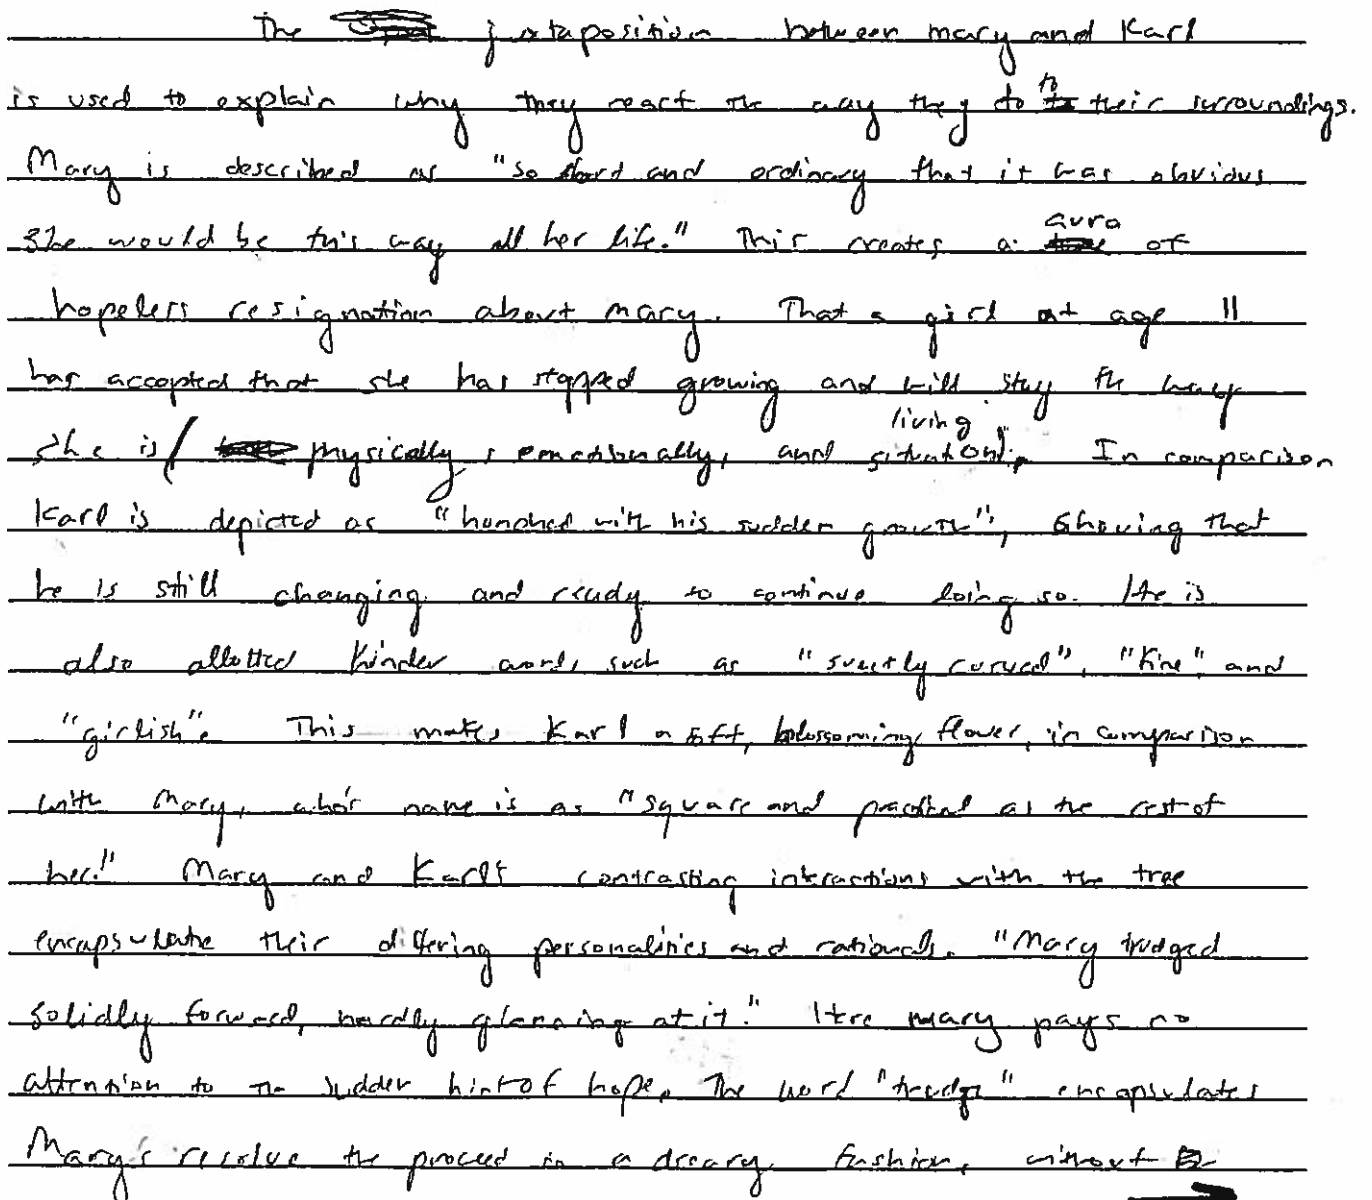 The juxtaposition between Mary and Karl
is used to explain why they react the way they do to their surroundings.
Mary is described as "so short and ordinary that it was obvious
she would be this way all her life." This creates a aura of
hopeless resignation about Mary. That a girl at age 11
has accepted that she has stopped growing and will stay the way
she is (physically, emotionally, and living situation). In comparison
Karl is depicted as "hunched with his sudden growth", showing that
he is still changing and ready to continue doing so. He is
also allotted kinder words such as "sweetly curved", "fine" and
"girlish". This makes Karl a soft, blossoming flower, in comparison
with Mary, who's name is as "square and practical as the rest of
her." Mary and Karl's contrasting interactions with the tree
encapsulate their differing personalities and rationals. "Mary trudged
solidly forward, hardly glancing at it." Here Mary pays no
attention to the sudden hint of hope. The word "trudge" encapsulates
Mary's resolve the proceed in a dreary fashion, without